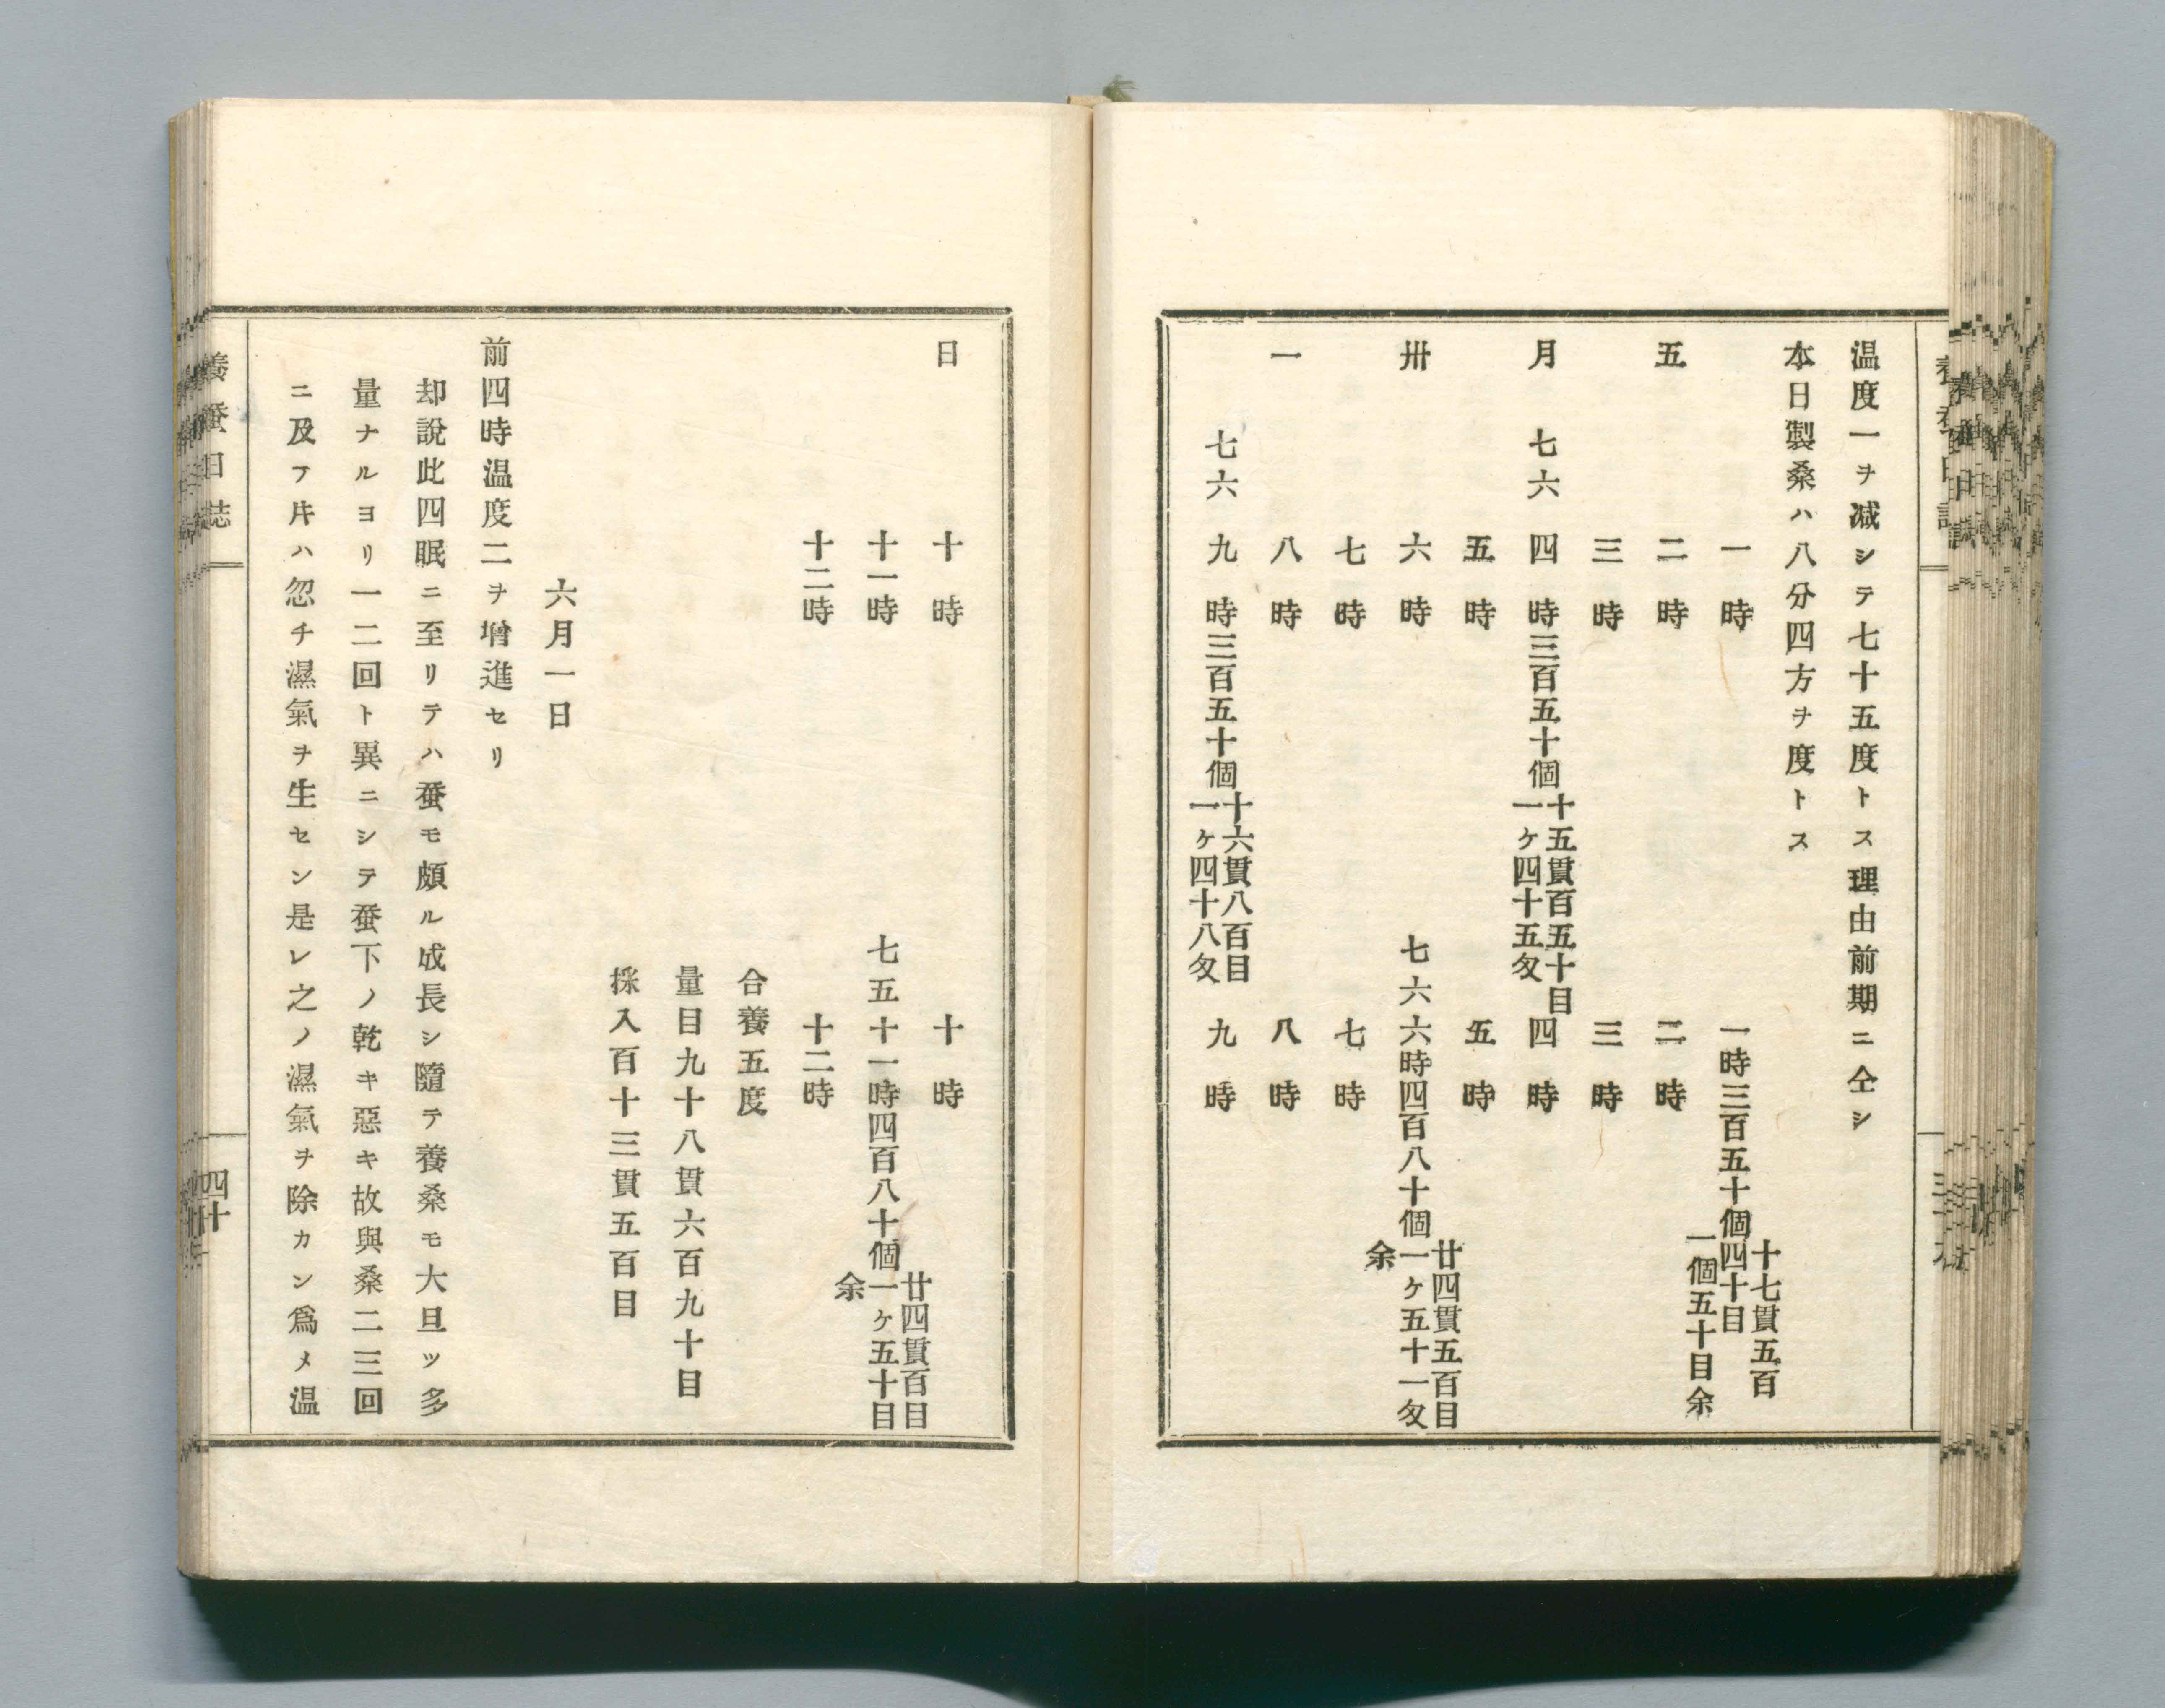 温度一ヲ減シテ七十五度トス理由前期ニ仝シ
本日製桑ハ八分四方ヲ度トス
一時 一時三百五十個 十七貫五百四十目 一個五十目余
五 二時 二時
三時 三時
月 七六 四時三百五十個 十五貫百五十目 一ヶ四十五匁 四時
五時 五時
卅 六時 七六 六時四百八十個 廿四貫五百目 一ヶ五十一匁余
七時 七時
一 八時 八時
七六 九時三百五十個 十六貫八百目 一ヶ四十八匁 九時
日 十時 十時
十一時 七五 十一時四百八十個 廿四貫百目 一ヶ五十目余
十二時 十二時
合養五度
量目九十八貫六百九十目
採入百十三貫五百目
六月一日
前四時温度二ヲ増進セリ
却說此四眠ニ至リテハ蚕モ頗ル成長シ隨テ養桑モ大旦ツ多
量ナルヨリ一二回ト異ニシテ蚕下ノ乾キ惡キ故與桑二三回
ニ及フ𪜈ハ忽チ濕氣ヲ生セン是レ之ノ濕氣ヲ除カン爲メ温
養蚕日誌
四十